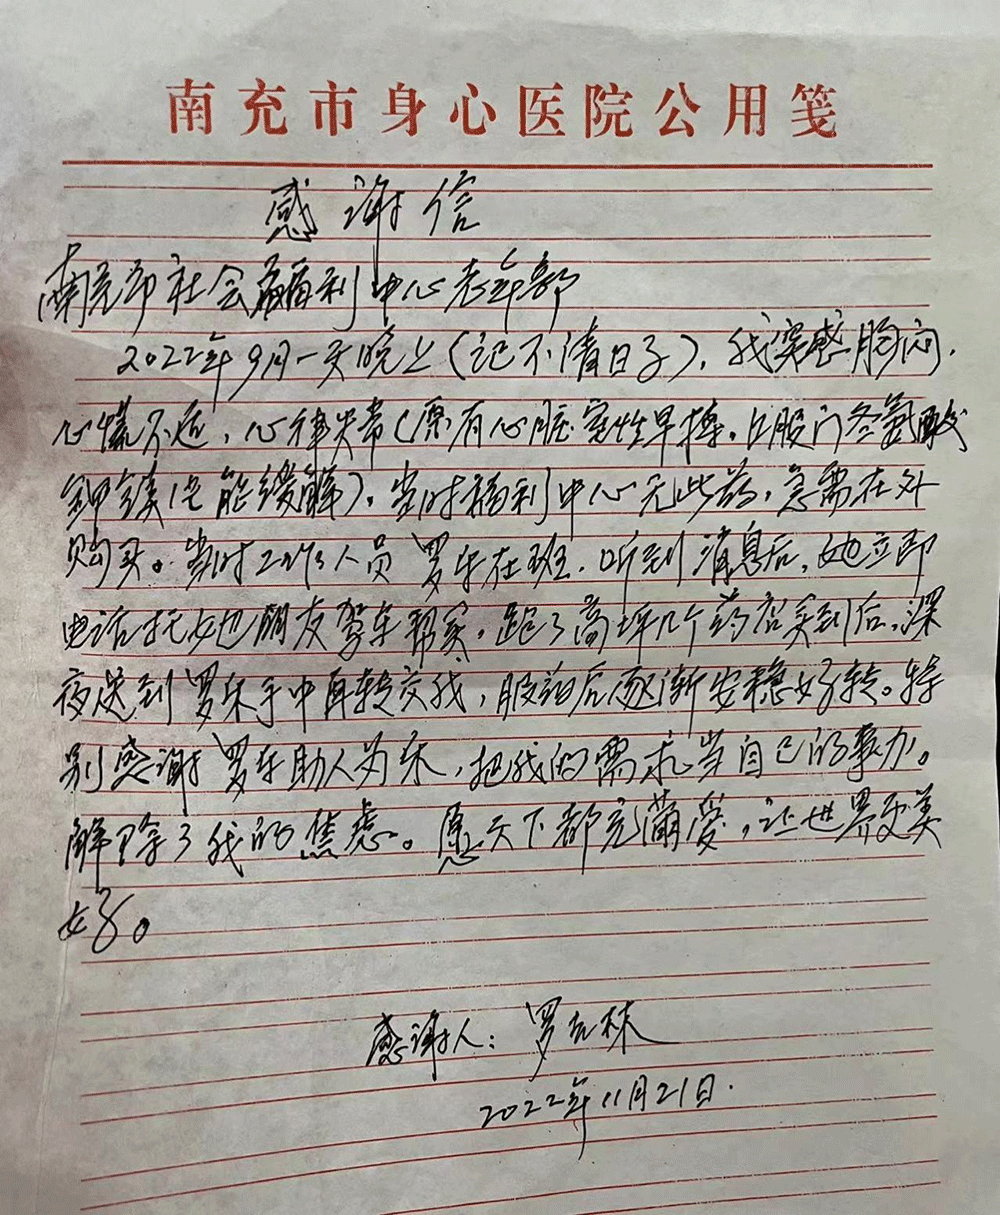 南充市身心医院公用笺
感谢信
南充市社会福利中心老年部
2022年9月一天晚上(记不清日子),我突感胸闷,
心慌不适,心律失常(原有心脏室性早搏。口服门冬氨酸
钾镁片能缓解),当时福利中心无此药,急需在外
购买。当时工作人员罗乐在班,听到消息后,她立即
电话托她朋友驾车帮买,跑了高坪几个药店买到后,深
夜送到罗乐手中再转交我,服药后逐渐安稳好转。特
别感谢罗乐助人为乐,把我的需求当自己的事办。
解除了我的焦虑。愿天下都充满爱,让世界更美
好。
感谢人:罗林
2022年11月21日.